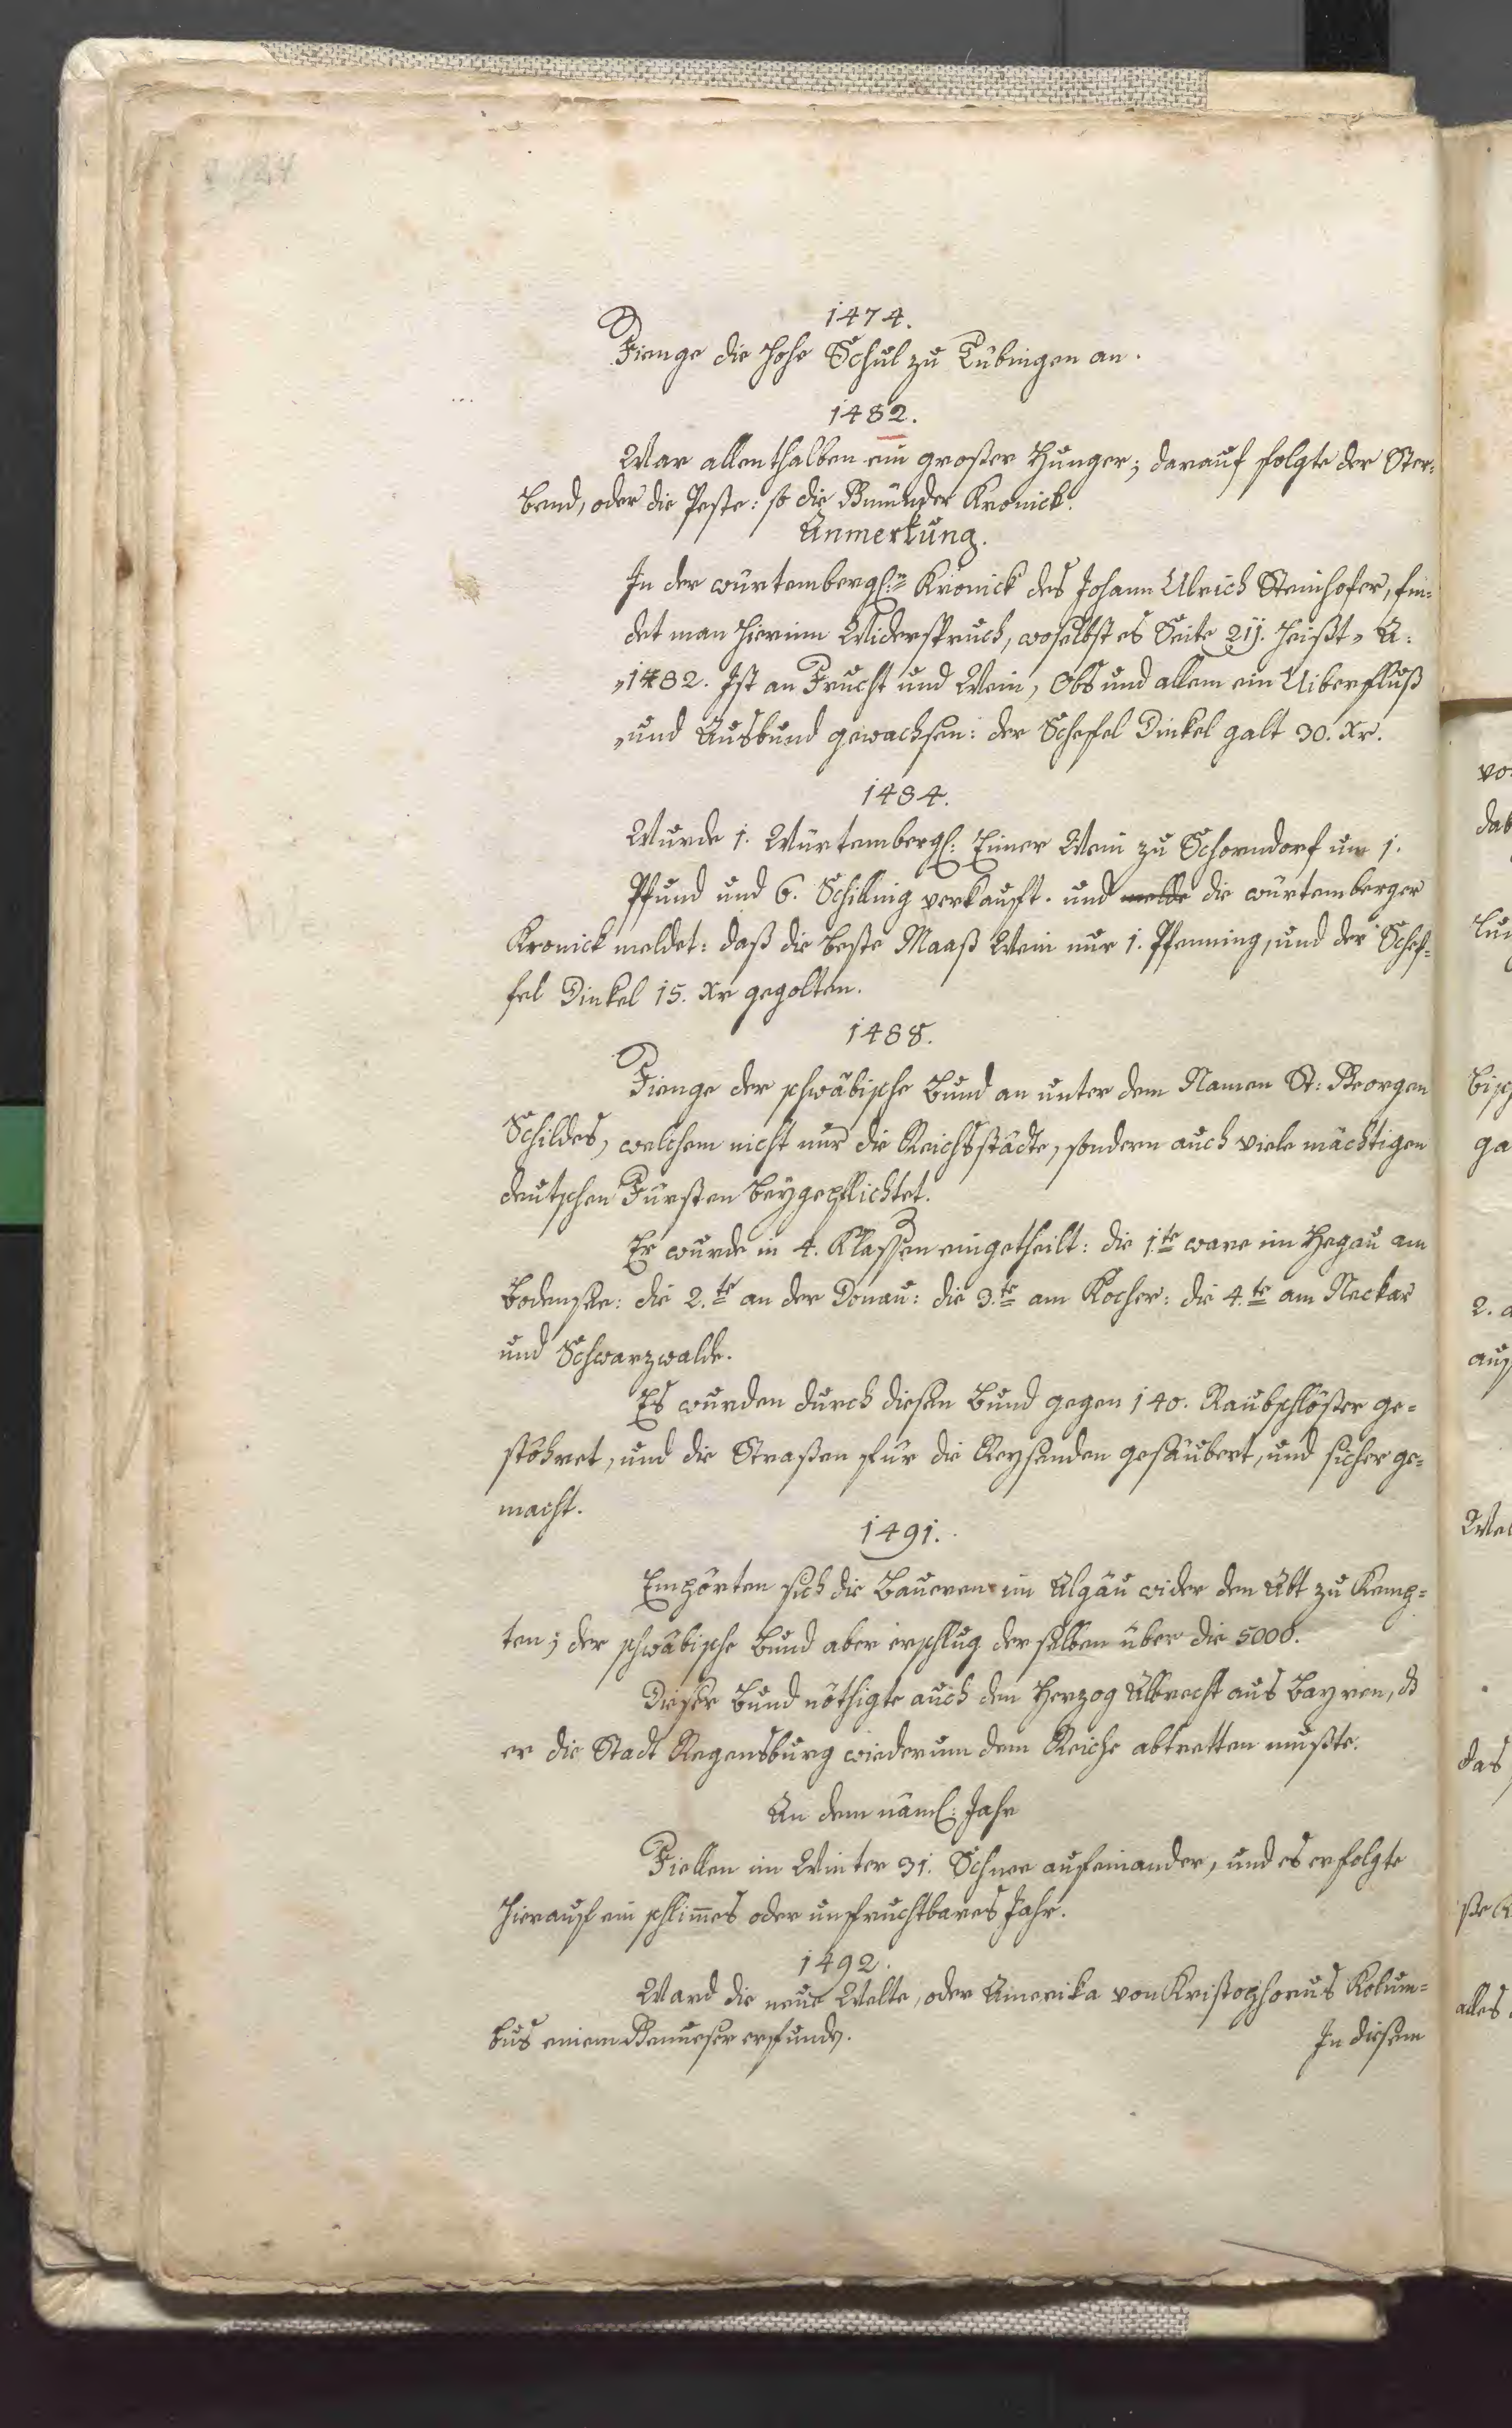 1474.
Fienge die hohe Schul zu Tübingen an.
1482.
War allenthalben ein großer Hunger; darauf folgte der Ster=
bend, oder die Peste: so die Gmünder Kronick.
Anmerkung.
In der würtembergl:n Kronick des Johann Ulrich Steinhofer, fin=
det man hierinn Widerspruch, woselbst es Seite 211. heißt „ A:
„1482. Ist an Frucht und Wein, Obs und allem ein Uiberfluß
„und Ausbund gewachsen: der Schefel Dinkel galt 30. Xr.
1484.
Wurde 1. Würtembergl: Eimer Wein zu Schorndorf um 1.
Pfund und 6. Schilling verkauft. und melde die würtemberger
Kronick meldet: daß die beste Maaß Wein nur 1. Pfenning, und der Schef=
fel Dinkel 15. Xr gegolten.
1488.
Fienge der schwäbische Bund an unter dem Namen St: Georgen
Schildes, welchem nicht nur die Reichsstädte, sondern auch viele mächtigen
deutschen Fürsten beygepflichtet.
Er wurde in 4. Klassen eingetheilt: die 1.te ware im Hegäu am
Bodensee: die 2.te an der Donau: die 3.te am Kocher: die 4.te am Neckar
und Schwarzwalde.
Es wurden durch diesen Bund gegen 140. Raubschlösser ge=
stöhret, und die Straßen für die Reysenden gesäubert, und sicher ge=
macht.
1491.
Empörten sich die Baueren im Algäu wider den Abt zu Kemp=
ten; der schwäbische Bund aber erschlug derselben über die 5000.
Dieser Bund nöthigte auch den Herzog Albrecht aus Bayren, dß
er die Stadt Regensburg wiederum dem Reiche abtretten mußte.
An dem näml: Jahr
Fiellen im Winter 31. Schnee aufeinander, und es erfolgte
hierauf ein schlim̅es oder unfruchtbares Jahr.
1492.
Ward die neue Welte, oder Amerika von Kristophorus Kolum=
bus einem Genueser erfunden.
In diesem